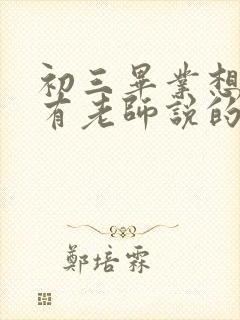 初三畢業想
有老師說的
鄭培霖